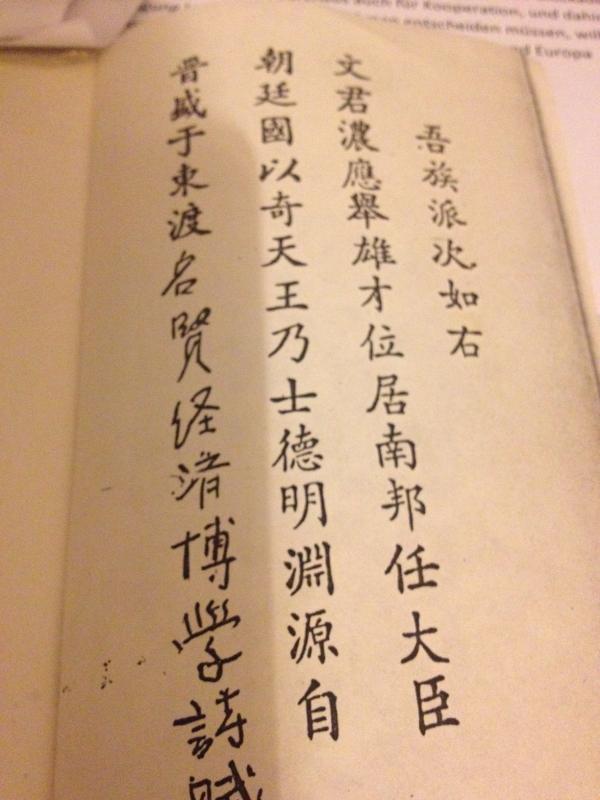 auch für Kooperation, und
entscheiden müssen,
Europa
吾族派次如右
文君濃應舉雄才位居南邦任大臣
朝廷國以奇天王乃士德明淵源自
晋盛于東渡名賢経済博學詩賦